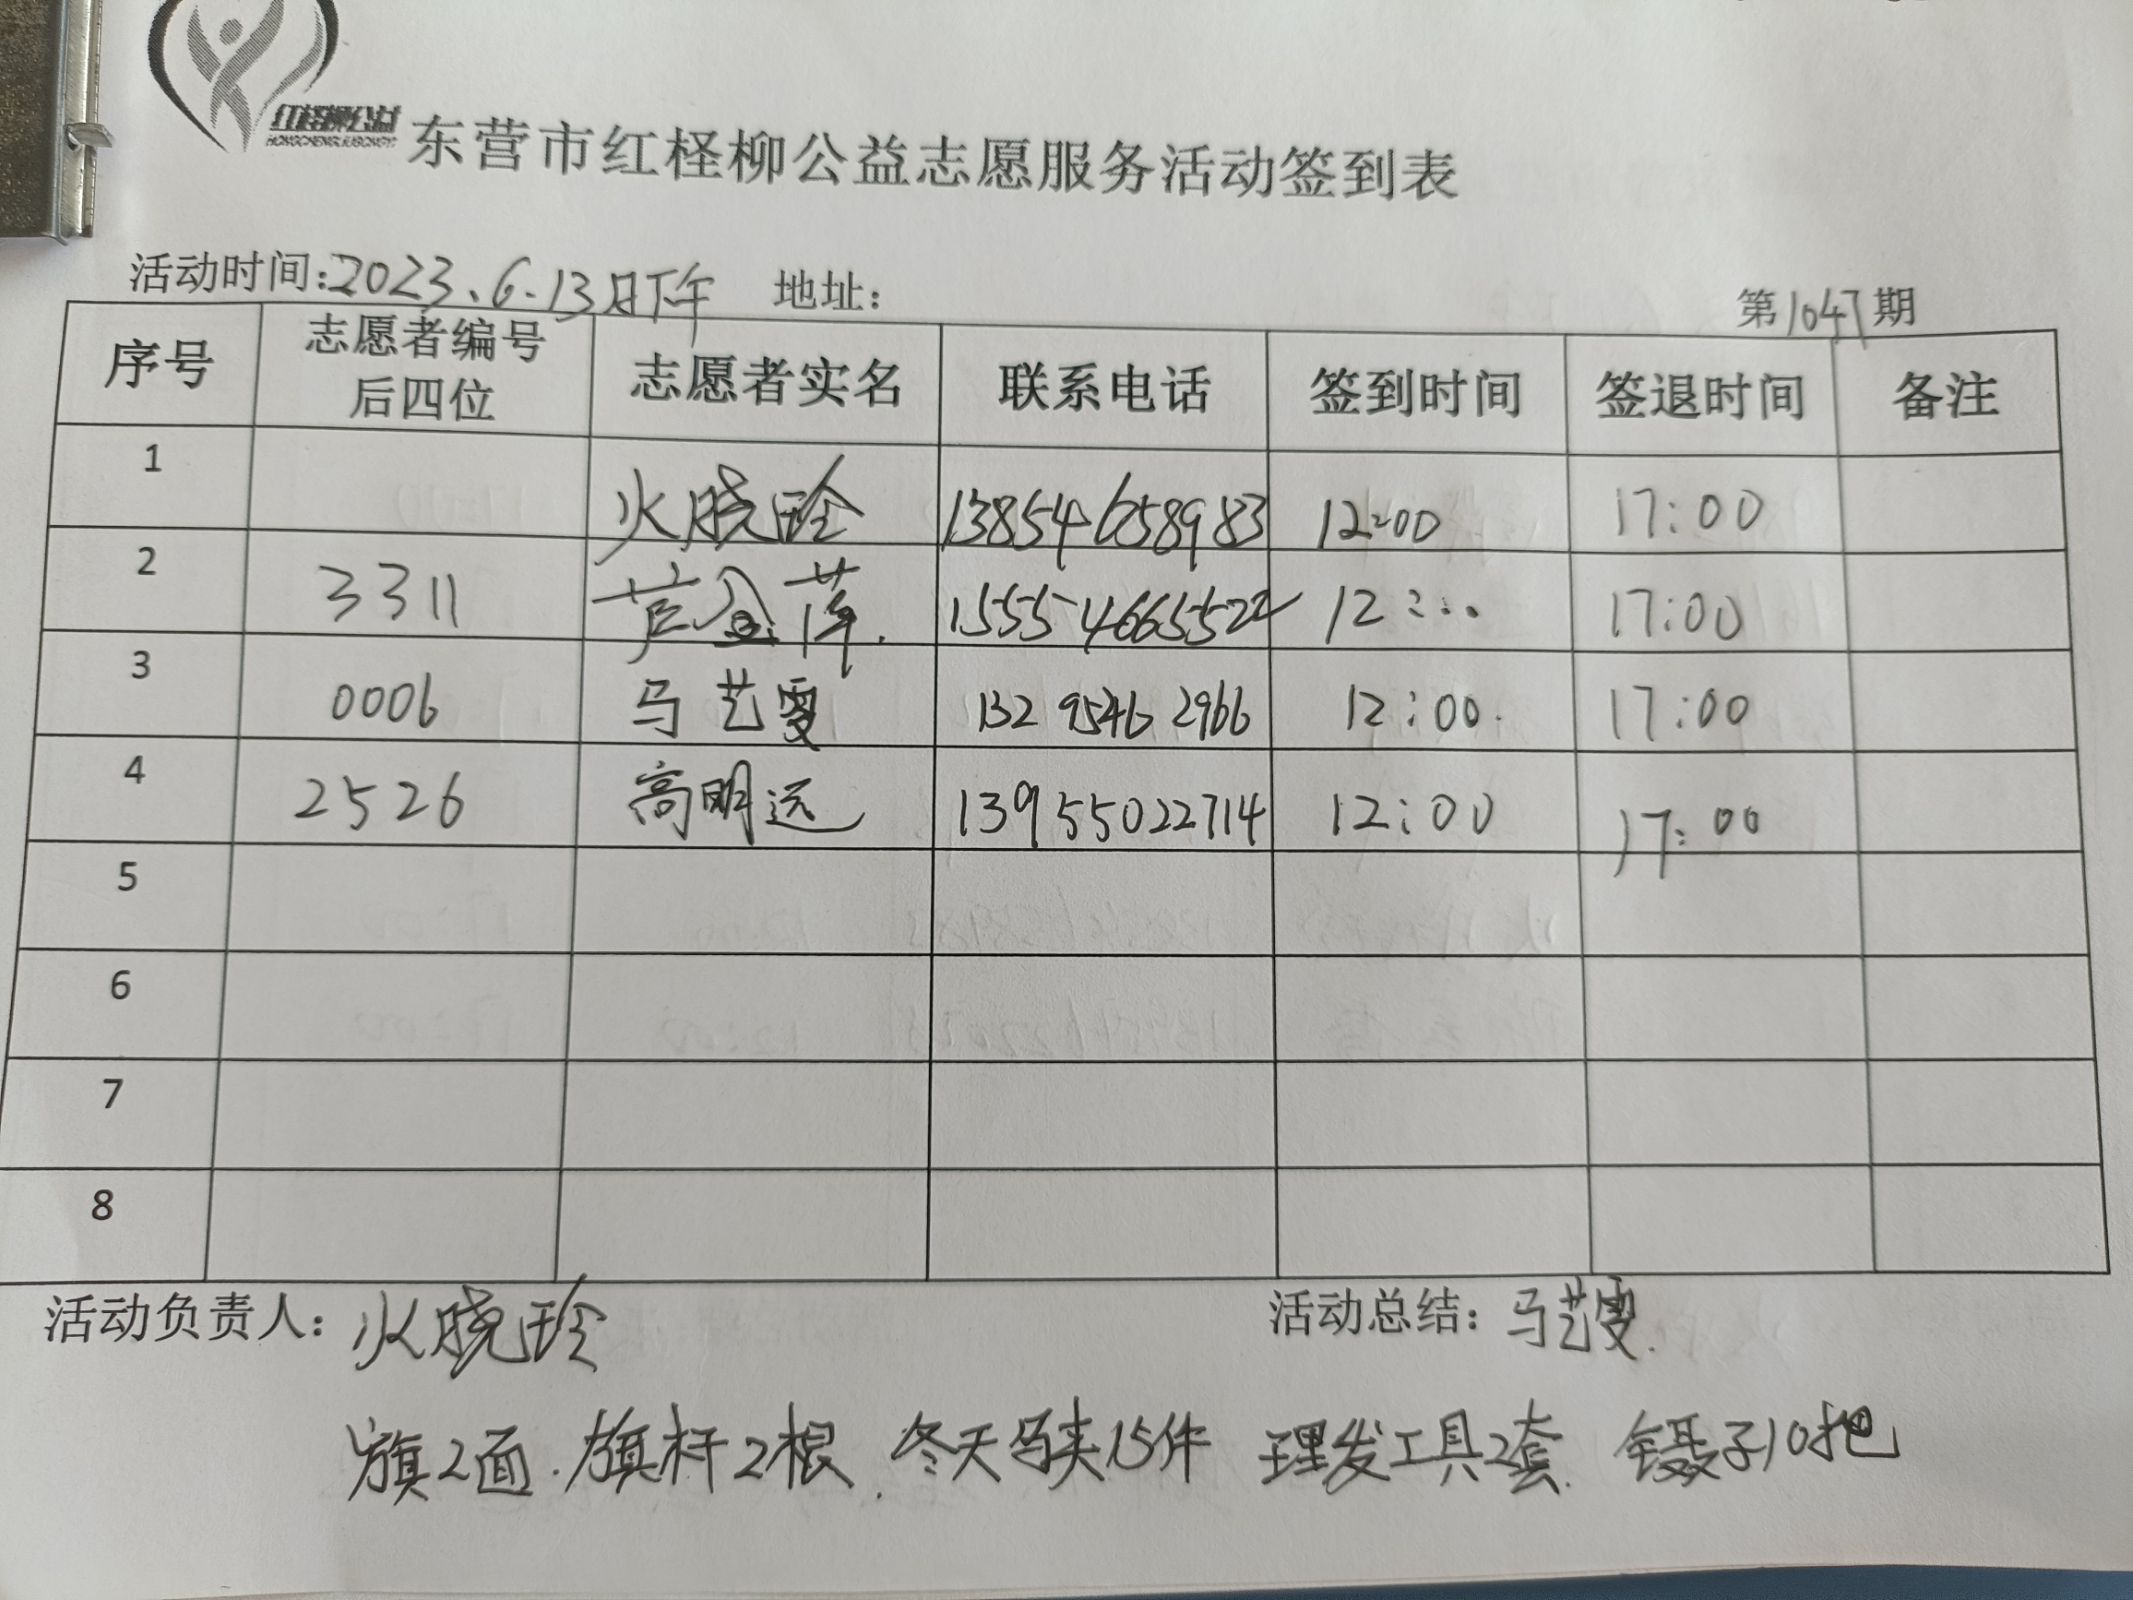 红柽柳公益
HONGCHENGLIUGONGYI
东营市红柽柳公益志愿服务活动签到表
活动时间:2023.6.13日下午 地址: 第1047期
序号 志愿者编号后四位 志愿者实名 联系电话 签到时间 签退时间 备注
1 火晓玲 13854658983 12:00 17:00
2 3311 15554665522 12:00 17:00
3 0006 马艺雯 132 9546 2966 12:00 17:00
4 2526 高明远 13955022714 12:00 17:00
5
6
7
8
活动负责人: 火晓玲 活动总结: 马艺雯.
旗2面. 旗杆2根. 冬天马夹15件 理发工具2套. 镊子10把